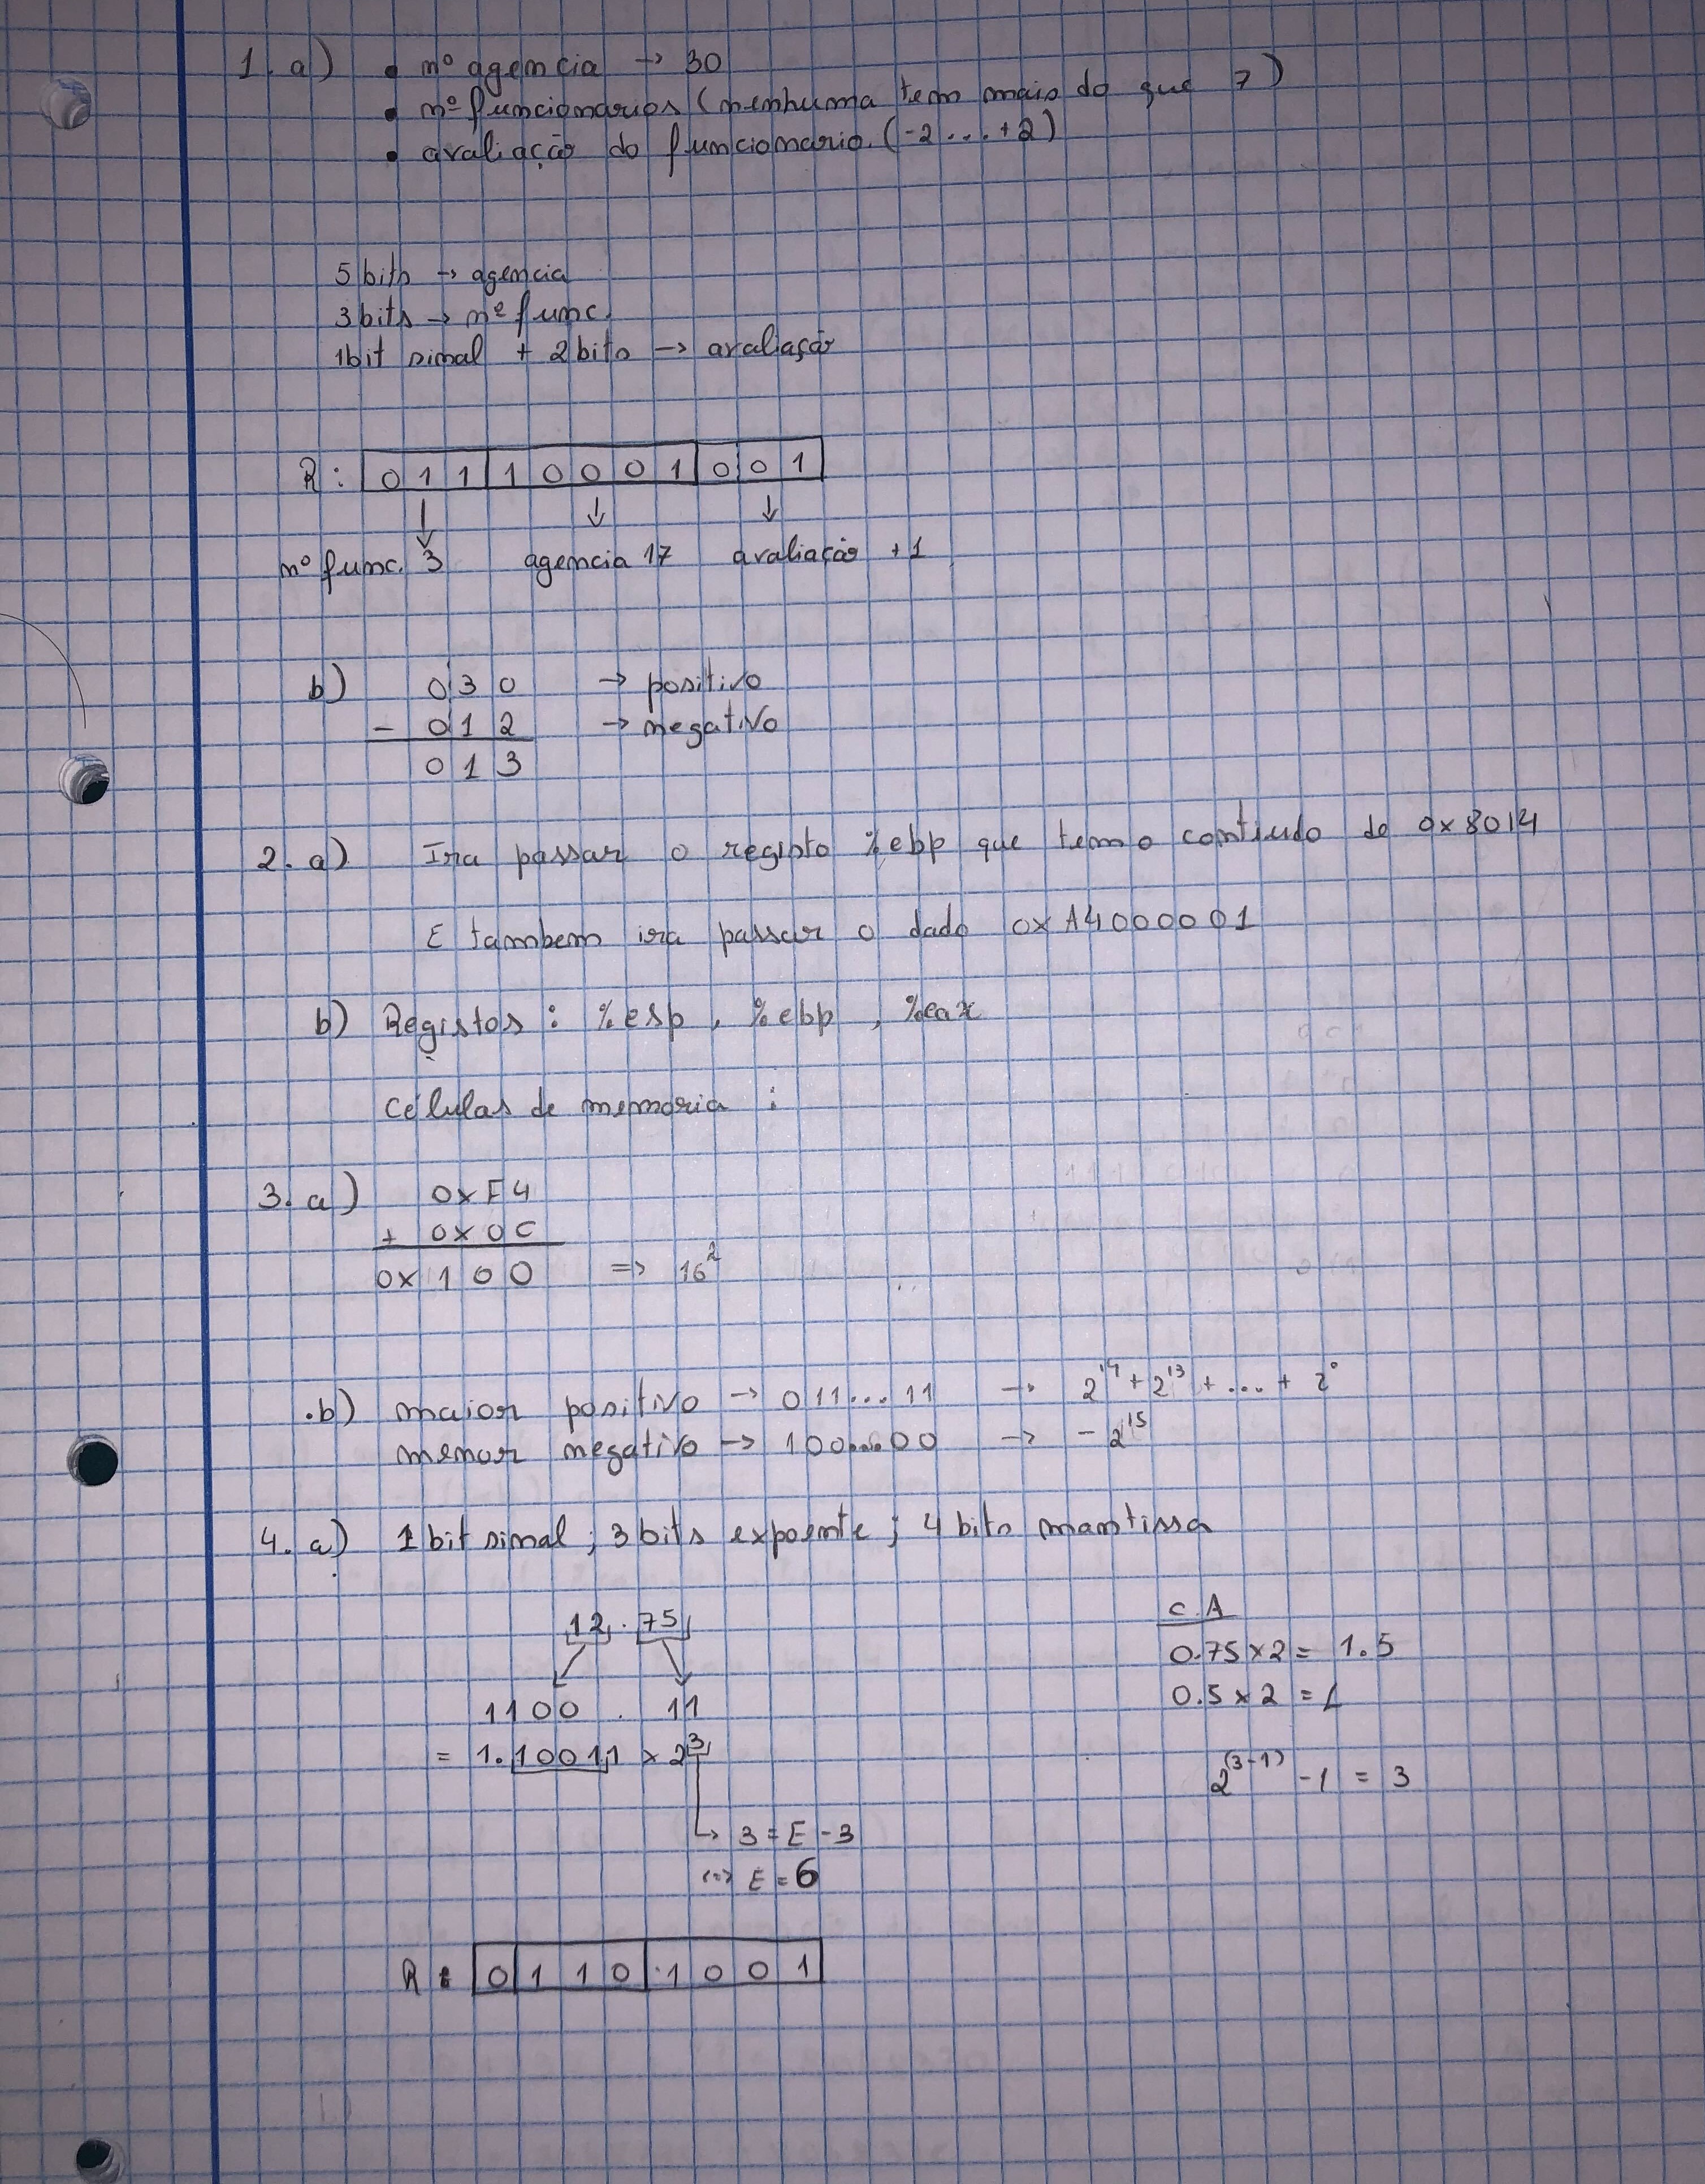 1. a) • nº agencia → 30
• nº funcionarios (nenhuma tem mais do que 7)
• avaliação do funcionario. (-2 ... +2)
5 bits → agencia
3 bits → nº func.
1 bit sinal + 2 bits → avaliação
R: 0 1 1 1 0 0 0 1 0 0 1
nº func. 3 agencia 17 avaliação +1
b) 0 3 0 → positivo
- 0 1 2 → negativo
0 1 3
2. a) Ira passar o registo %ebp que tem o contiudo de 0x8014
E tambem ira passar o dado 0xA4000001
b) Registos: %esp, %ebp, %eax
Células de memoria :
3. a) 0xF4
+ 0x0C
0x100 => 16²
b) maior positivo → 011...11 → 2¹⁴ + 2¹³ + ... + 2⁰
menor negativo → 100...00 → - 2¹⁵
4. a) 1 bit sinal; 3 bits expoente; 4 bits mantissa
12.75
1100 . 11
= 1.10011 × 2³
↳ 3 = E - 3
<=> E = 6
C.A
0.75 × 2 = 1.5
0.5 × 2 = 1
2⁽³⁻¹⁾ - 1 = 3
R: 0 1 1 0 1 0 0 1